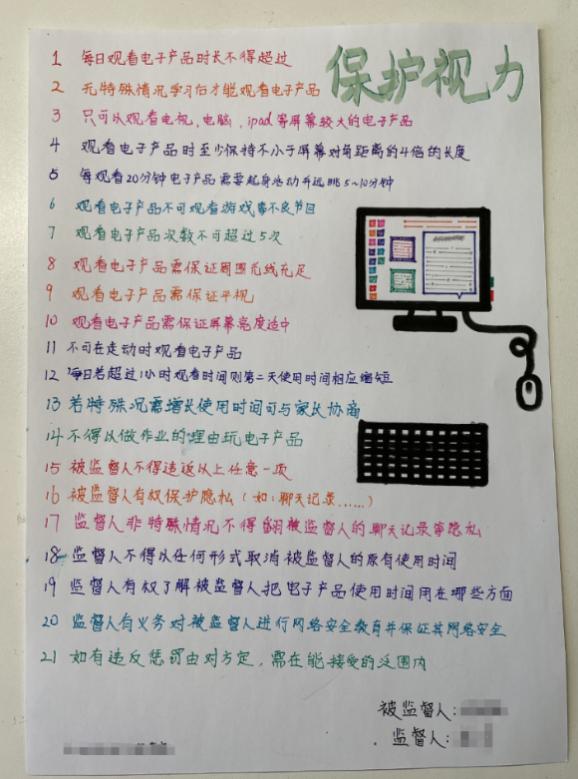 保护视力
1 每日观看电子产品时长不得超过
2 无特殊情况学习后才能观看电子产品
3 只可以观看电视、电脑、ipad等屏幕较大的电子产品
4 观看电子产品时至少保持不小于屏幕对角距离的4倍的长度
5 每观看20分钟电子产品需要起身活动并远眺5~10分钟
6 观看电子产品不可观看游戏等不良节目
7 观看电子产品次数不可超过5次
8 观看电子产品需保证周围光线充足
9 观看电子产品需保证平视
10 观看电子产品需保证屏幕亮度适中
11 不可在走动时观看电子产品
12 每日若超过1小时观看时间则第二天使用时间相应缩短
13 若特殊况需增长使用时间可与家长协商
14 不得以做作业的理由玩电子产品
15 被监督人不得违返以上任意一项
16 被监督人有权保护隐私(如:聊天记录……)
17 监督人非特殊情况不得翻被监督人的聊天记录等隐私
18 监督人不得以任何形式取消被监督人的原有使用时间
19 监督人有权了解被监督人把电子产品使用时间用在哪些方面
20 监督人有义务对被监督人进行网络安全教育并保证其网络安全
21 如有违反惩罚由对方定,需在能接受的泛围内
被监督人:
监督人: